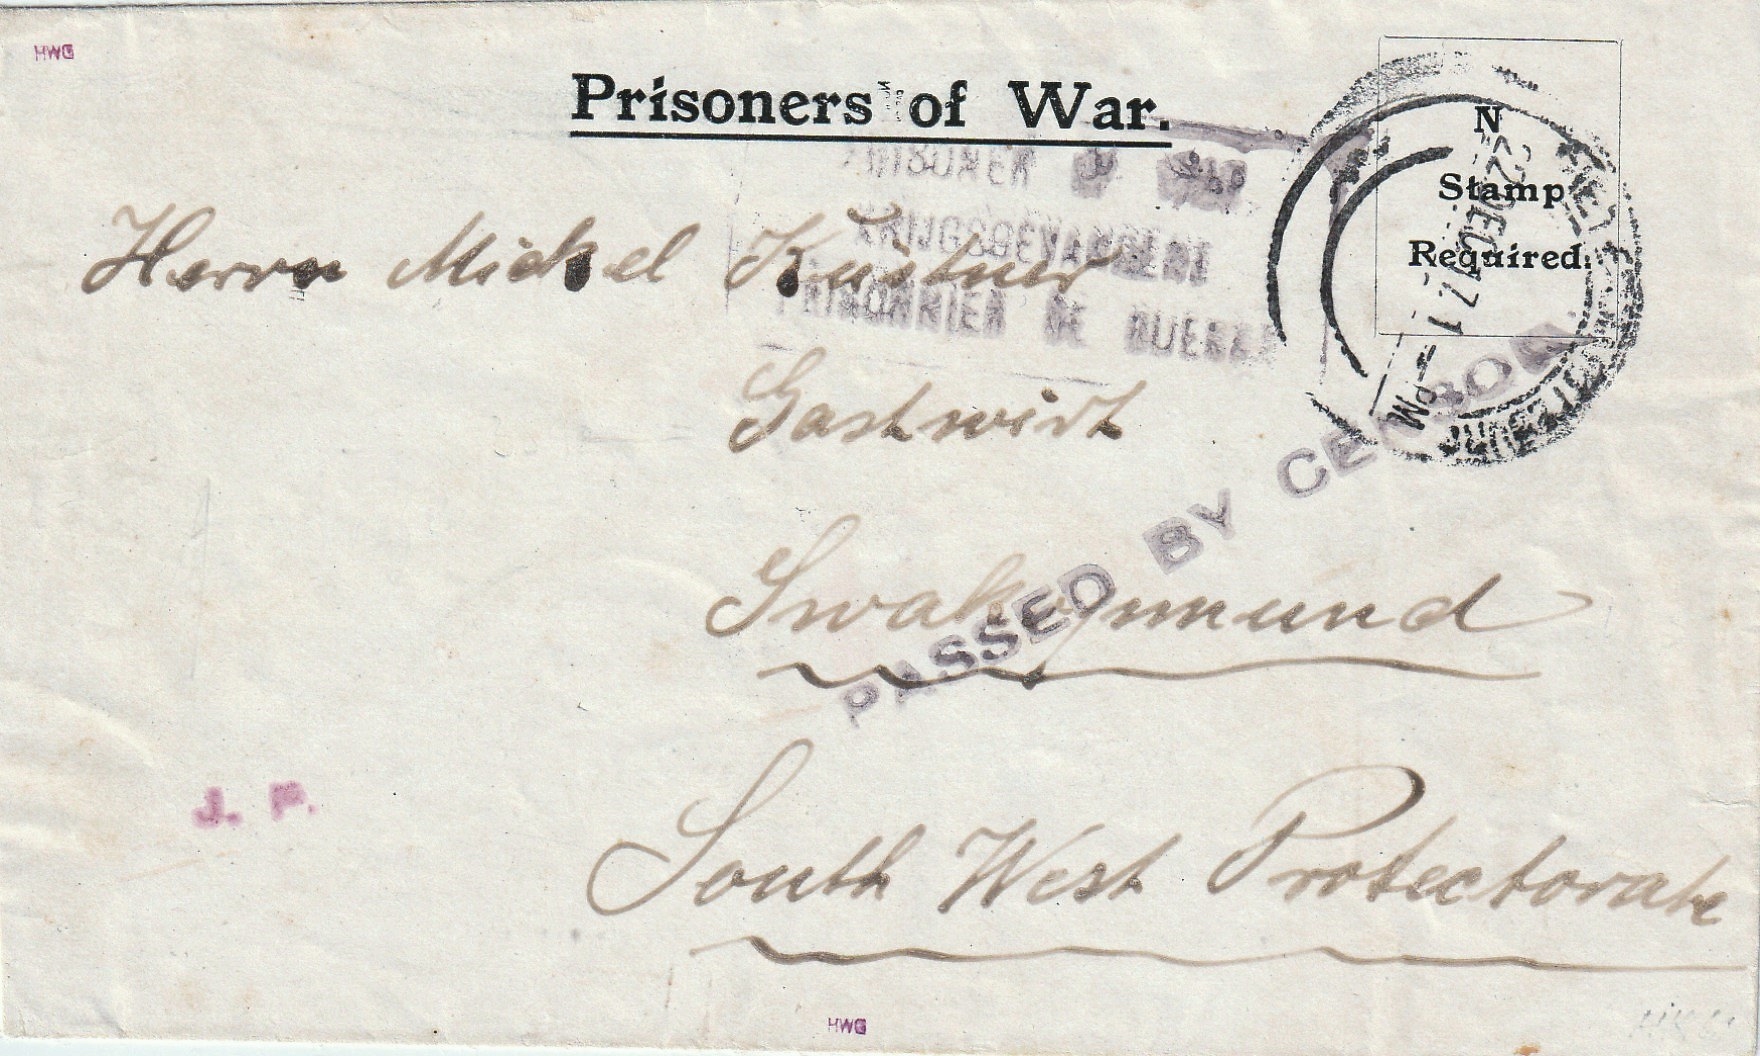 HWG
Prisoners of War.
N
Stamp
Required.
22 DEC 17
PM
PRISONER
KRIJGSGEVANGENE
PRISONNIER DE GUERRE
Herrn Michel Küstner
Gastwirt
PASSED BY CENSOR
Swakopmund
J. P.
South West Protectorate
HWG